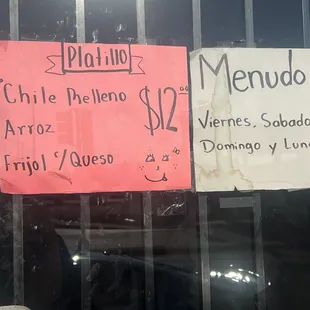 Platillo
Chile Relleno
Arroz
Frijol c/Queso
$12.00
Menudo
Viernes, Sabado
Domingo y Lun